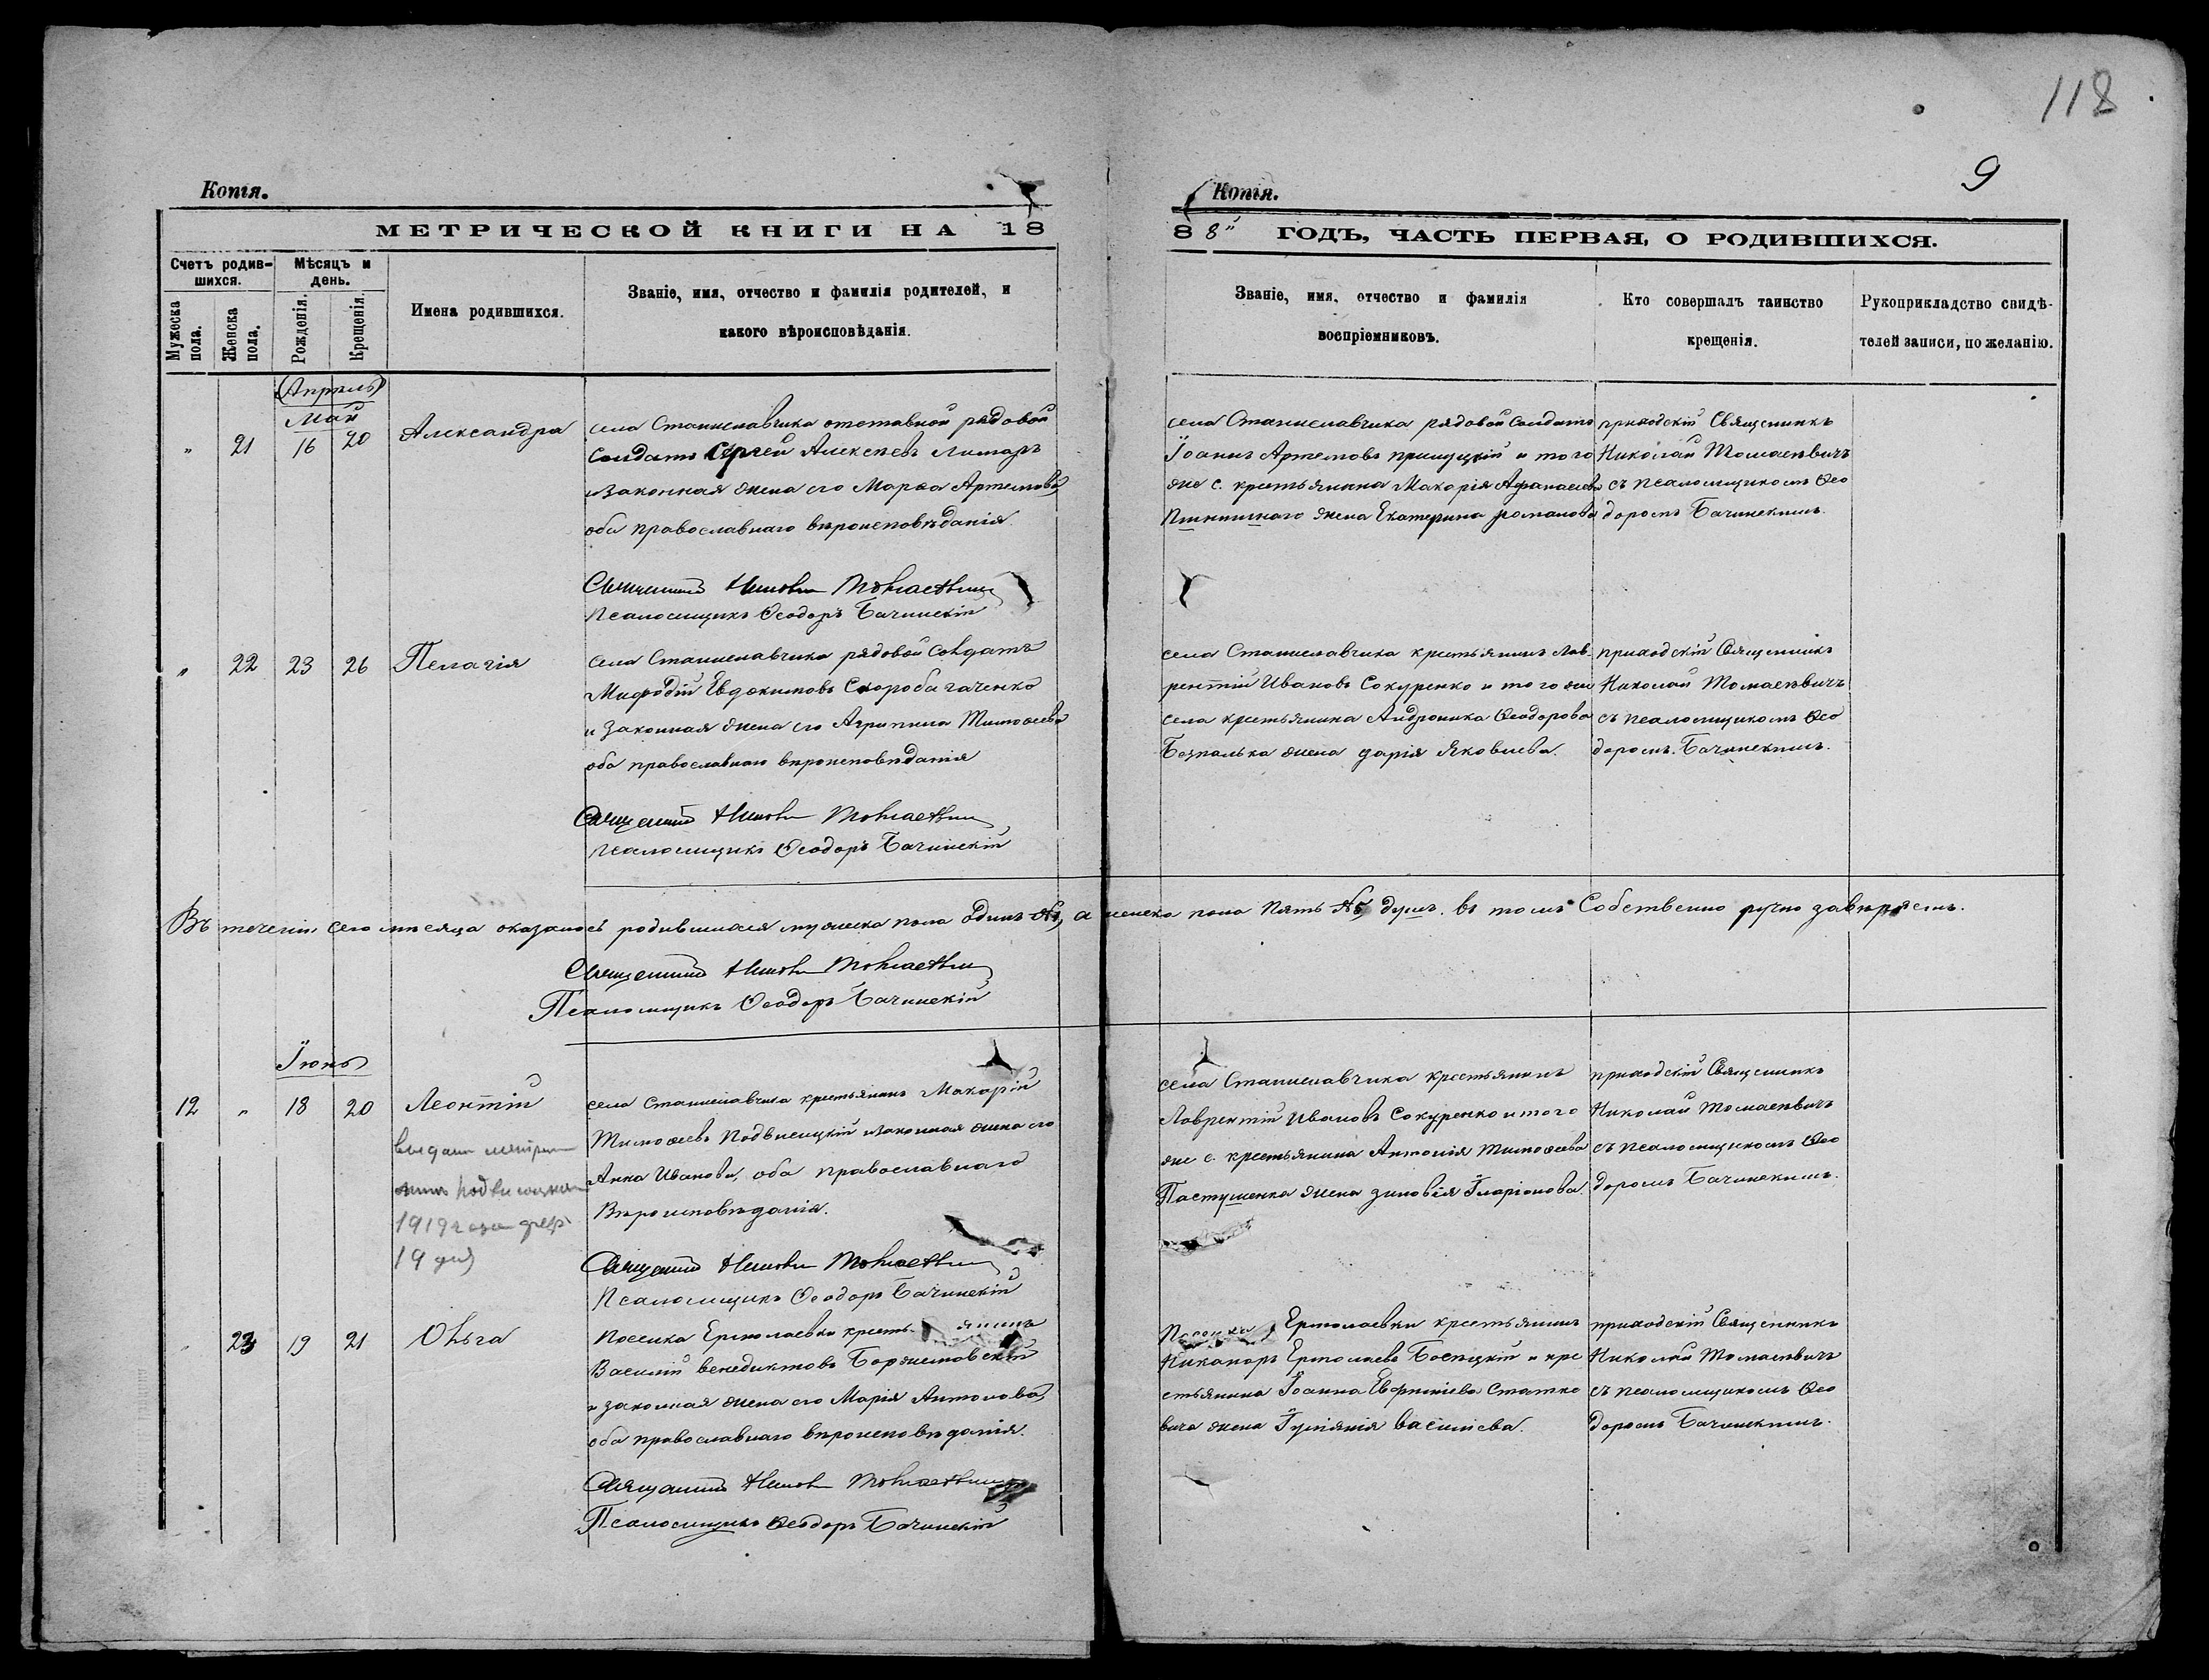 118
9
Копія.
Копія.
МЕТРИЧЕСКОЙ КНИГИ НА 18
88 ГОДЪ, ЧАСТЬ ПЕРВАЯ, О РОДИВШИХСЯ.
Счетъ родив-
шихся.
Мѣсяцъ и
день.
Мужеска
пола.
Женска
пола.
Рожденія.
Крещенія.
Имена родившихся.
Званіе, имя, отчество и фамилія родителей, и
какого вѣроисповѣданія.
Званіе, имя, отчество и фамилія
воспріемниковъ.
Кто совершалъ таинство
крещенія.
Рукоприкладство свидѣ-
телей записи, по желанію.
(Апрель)
Май
" 21 16 20 Александра
села Станиславчика отставной рядовой
Солдатъ Сергей Алексѣевъ
и законная жена его Марѳа Артемова,
оба православнаго вѣроисповѣданія.
Священникъ Николай Томасевичъ
Псаломщикъ Ѳеодоръ Бачинскій
села Станиславчика рядовой Солдатъ
Іоаннъ Артемовъ и того
же с. крестьянина Макарія Афанасиева
жена Екатерина романова
приходскій Священникъ
Николай Томасевичъ
съ псаломщикомъ Ѳео
доромъ Бачинскимъ.
" 22 23 26 Пелагія
села Станиславчика рядовой Солдатъ
Мифодій Евдокимовъ Скоробагаченко
и законная жена его Агрипина Тимоѳеева
оба православнаго вѣроисповѣданія
Священникъ Николай Томасевичъ
Псаломщикъ Ѳеодоръ Бачинскій
села Станиславчика крестьянинъ Лав-
рентій Ивановъ Сокуренко и того же
села крестьянина Андроника Ѳеодорова
Безпалька жена дарія Яковлева.
приходскій Священникъ
Николай Томасевичъ
съ псаломщикомъ Ѳео
доромъ Бачинскимъ.
Въ теченіи сего мѣсяца оказалось родившихся мужеска пола одинъ №1, а женска пола пять №5 душъ. въ томъ Собственно ручно завѣряемъ.
Священникъ Николай Томасевичъ
Псаломщикъ Ѳеодоръ Бачинскій
Іюнь
12 " 18 20 Леонтій
1919
19
села Станиславчика крестьянинъ Макарій
Тимоѳеевъ Подвисоцкій и законная жена его
Анна Иванова, оба православнаго
Вѣроисповѣданія.
Священникъ Николай Томасевичъ
Псаломщикъ Ѳеодоръ Бачинскій
села Станиславчика крестьянинъ
Лаврентій Ивановъ Сокуренко и того
же с. крестьянина Антонія Тимоѳеева
Пастушенка жена зиновія Іларіонова.
приходскій Священникъ
Николай Томасевичъ
съ псаломщикомъ Ѳео
доромъ Бачинскимъ.
" 23 19 21 Ольга
Поселка Ермолаевки крестьянинъ
Василій венедиктовъ Боржемовскій
и законная жена его Марія Антонова,
оба православнаго вѣроисповѣданія.
Священникъ Николай Томасевичъ
Псаломщикъ Ѳеодоръ Бачинскій
Поселка Ермолаевки крестьянинъ
Никаноръ Ермолаевъ и кре
стьянина Іоанна Статке
вича жена василіева.
приходскій Священникъ
Николай Томасевичъ
съ псаломщикомъ Ѳео
доромъ Бачинскимъ.